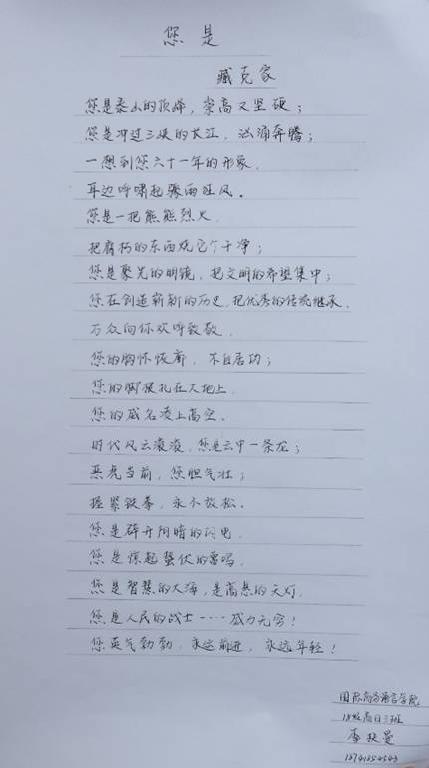 您是
臧克家
您是泰山的顶峰，崇高又坚硬；
您是冲过三峡的长江，汹涌奔腾；
一想到您六十一年的形象，
耳边呼啸起骤雨狂风。
您是一把熊熊烈火，
把腐朽的东西烧它个干净；
您是聚光的明镜，把文明的希望集中；
您在创造崭新的历史，把优秀的传统继承，
万众向你欢呼致敬，
您的胸怀恢廓，不自居功；
您的脚根扎在大地上，
您的威名凌上高空。
时代风云滚滚，您是云中一条龙；
恶虎当前，您胆气壮；
握紧铁拳，永不放松。
您是辟开阴暗的闪电，
您是惊起蛰伏的雷鸣，
您是智慧的大海，是高悬的天灯，
您是人民的战士……威力无穷！
您英气勃勃，永远前进，永远年轻！
国际商务语言学院
18级商日三班
李